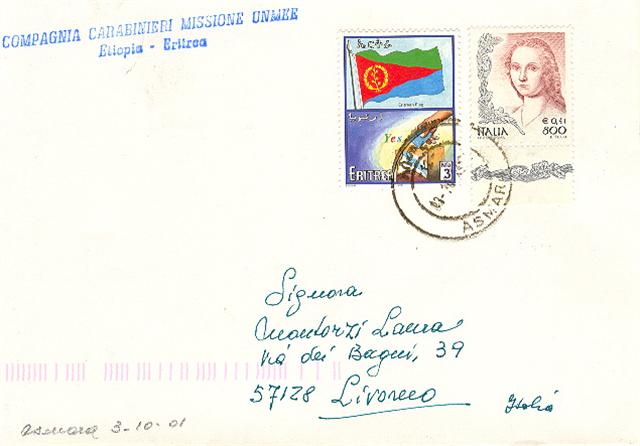 COMPAGNIA CARABINIERI MISSIONE UNMEE
Etiopia - Eritrea
ኤርትራ
Eritrean Flag
إرتريا
Yes
ERITREA
3
€ 0,41
ITALIA 800
ASMARA
Signora
Montorzi Laura
Via dei Bagni, 39
57128 Livorno
Italia
asmara 3-10-01